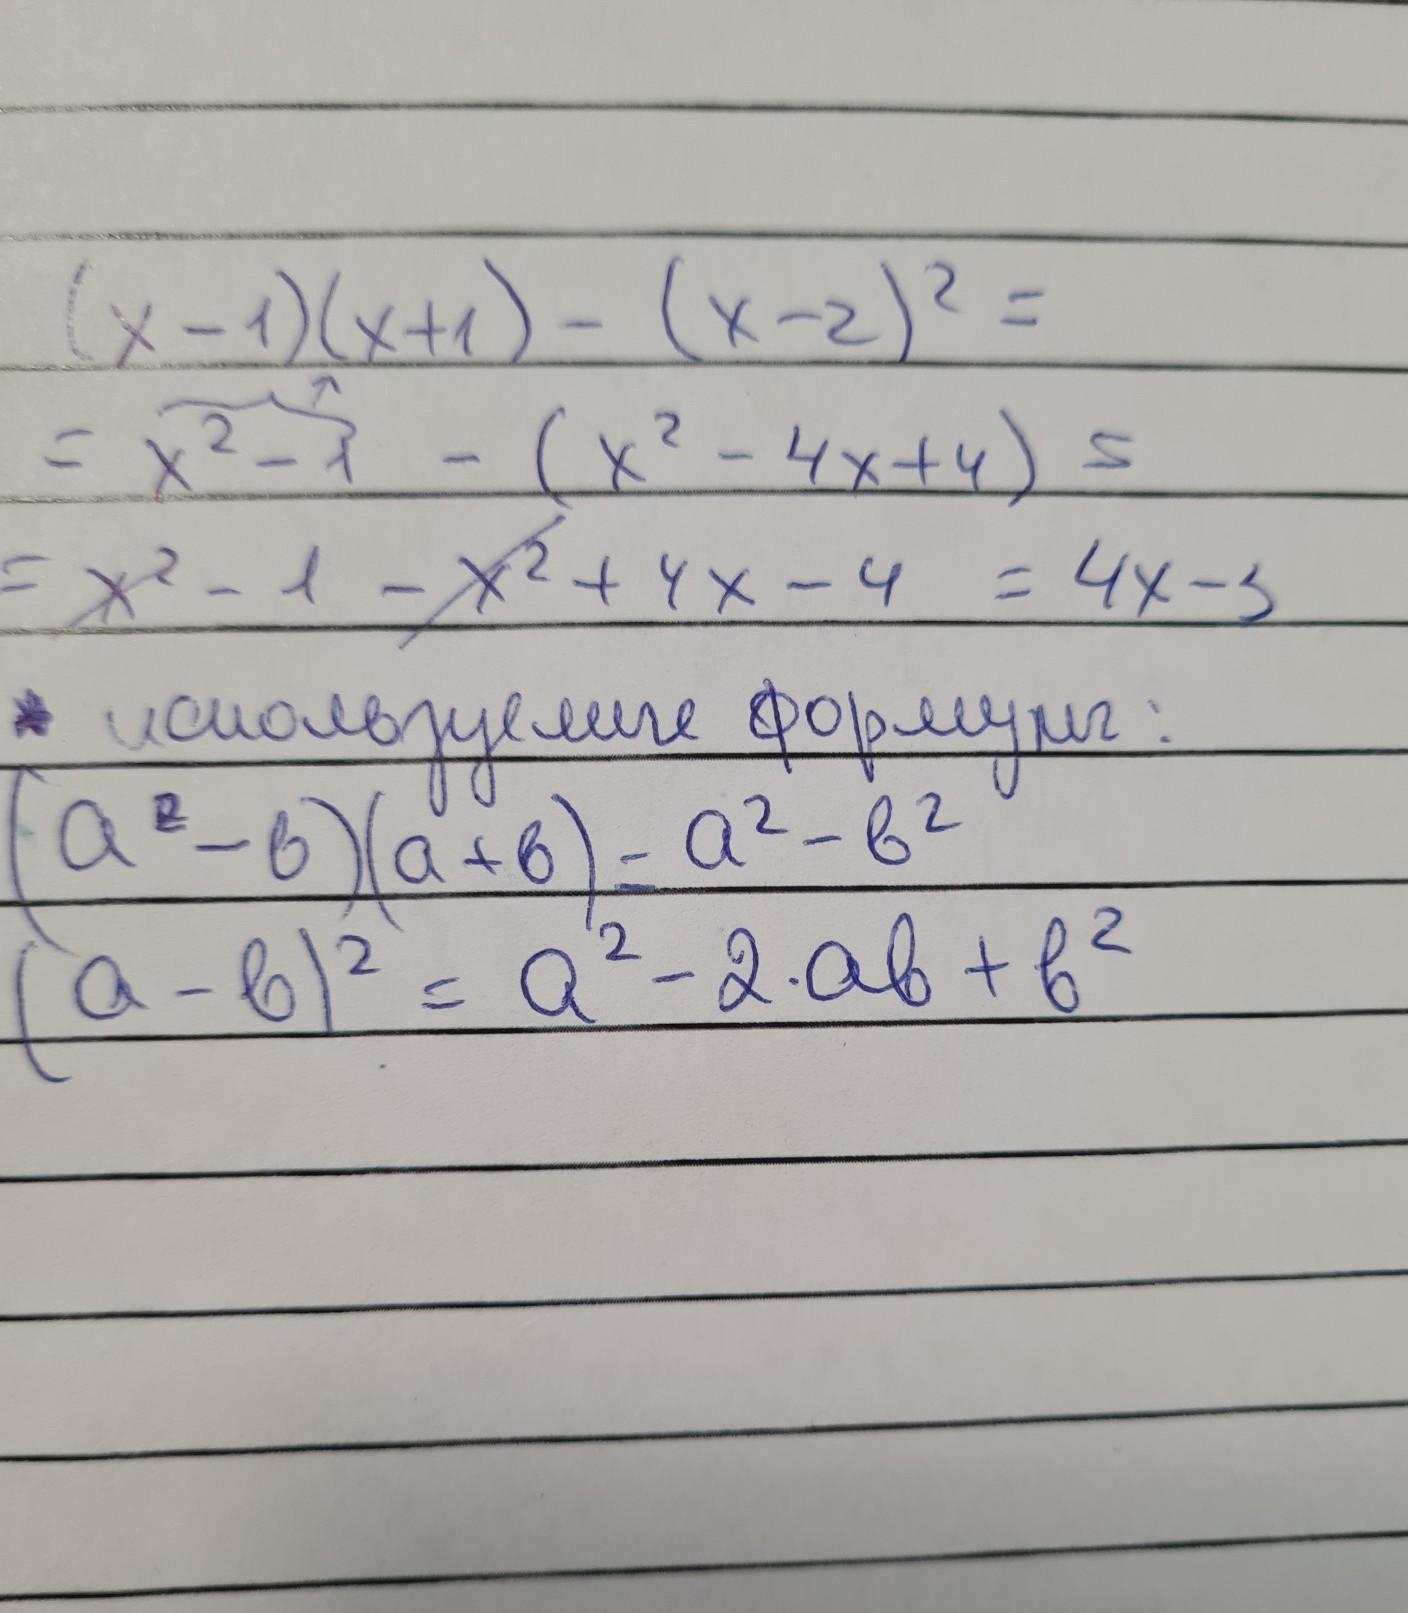 (x-1)(x+1) - (x-2)² =
= x²-1 - (x² - 4x+4) =
= x² - 1 - x² + 4x - 4 = 4x-5
* используемые формулы:
(a² - b)(a+b) = a² - b²
(a - b)² = a² - 2·ab + b²